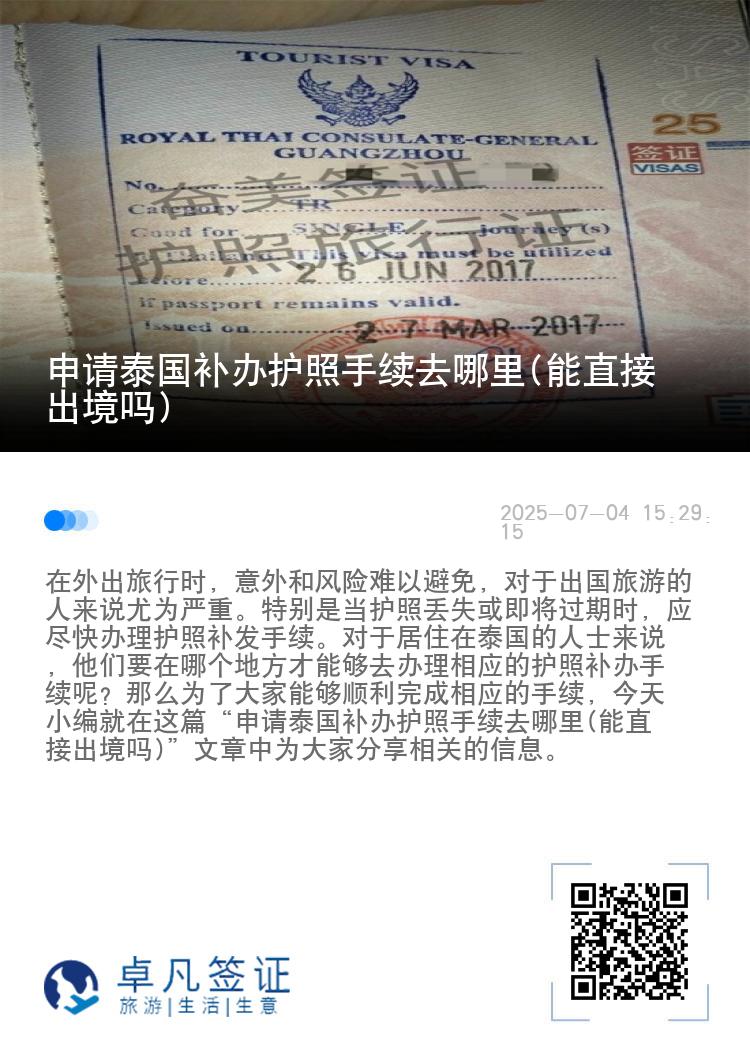 TOURIST VISA
ROYAL THAI CONSULATE-GENERAL
GUANGZHOU
25
签证
VISAS
No.
Category TR
Good for SINGLE journey (s)
Thailand. This visa must be utilized
before 26 JUN 2017
if passport remains valid.
Issued on 27 MAR 2017
奋美签证
护照旅行证
申请泰国补办护照手续去哪里(能直接
出境吗)
2025-07-04 15:29:
15
在外出旅行时，意外和风险难以避免，对于出国旅游的
人来说尤为严重。特别是当护照丢失或即将过期时，应
尽快办理护照补发手续。对于居住在泰国的人士来说
，他们要在哪个地方才能够去办理相应的护照补办手
续呢？那么为了大家能够顺利完成相应的手续，今天
小编就在这篇“申请泰国补办护照手续去哪里(能直
接出境吗)”文章中为大家分享相关的信息。
卓凡签证
旅游|生活|生意